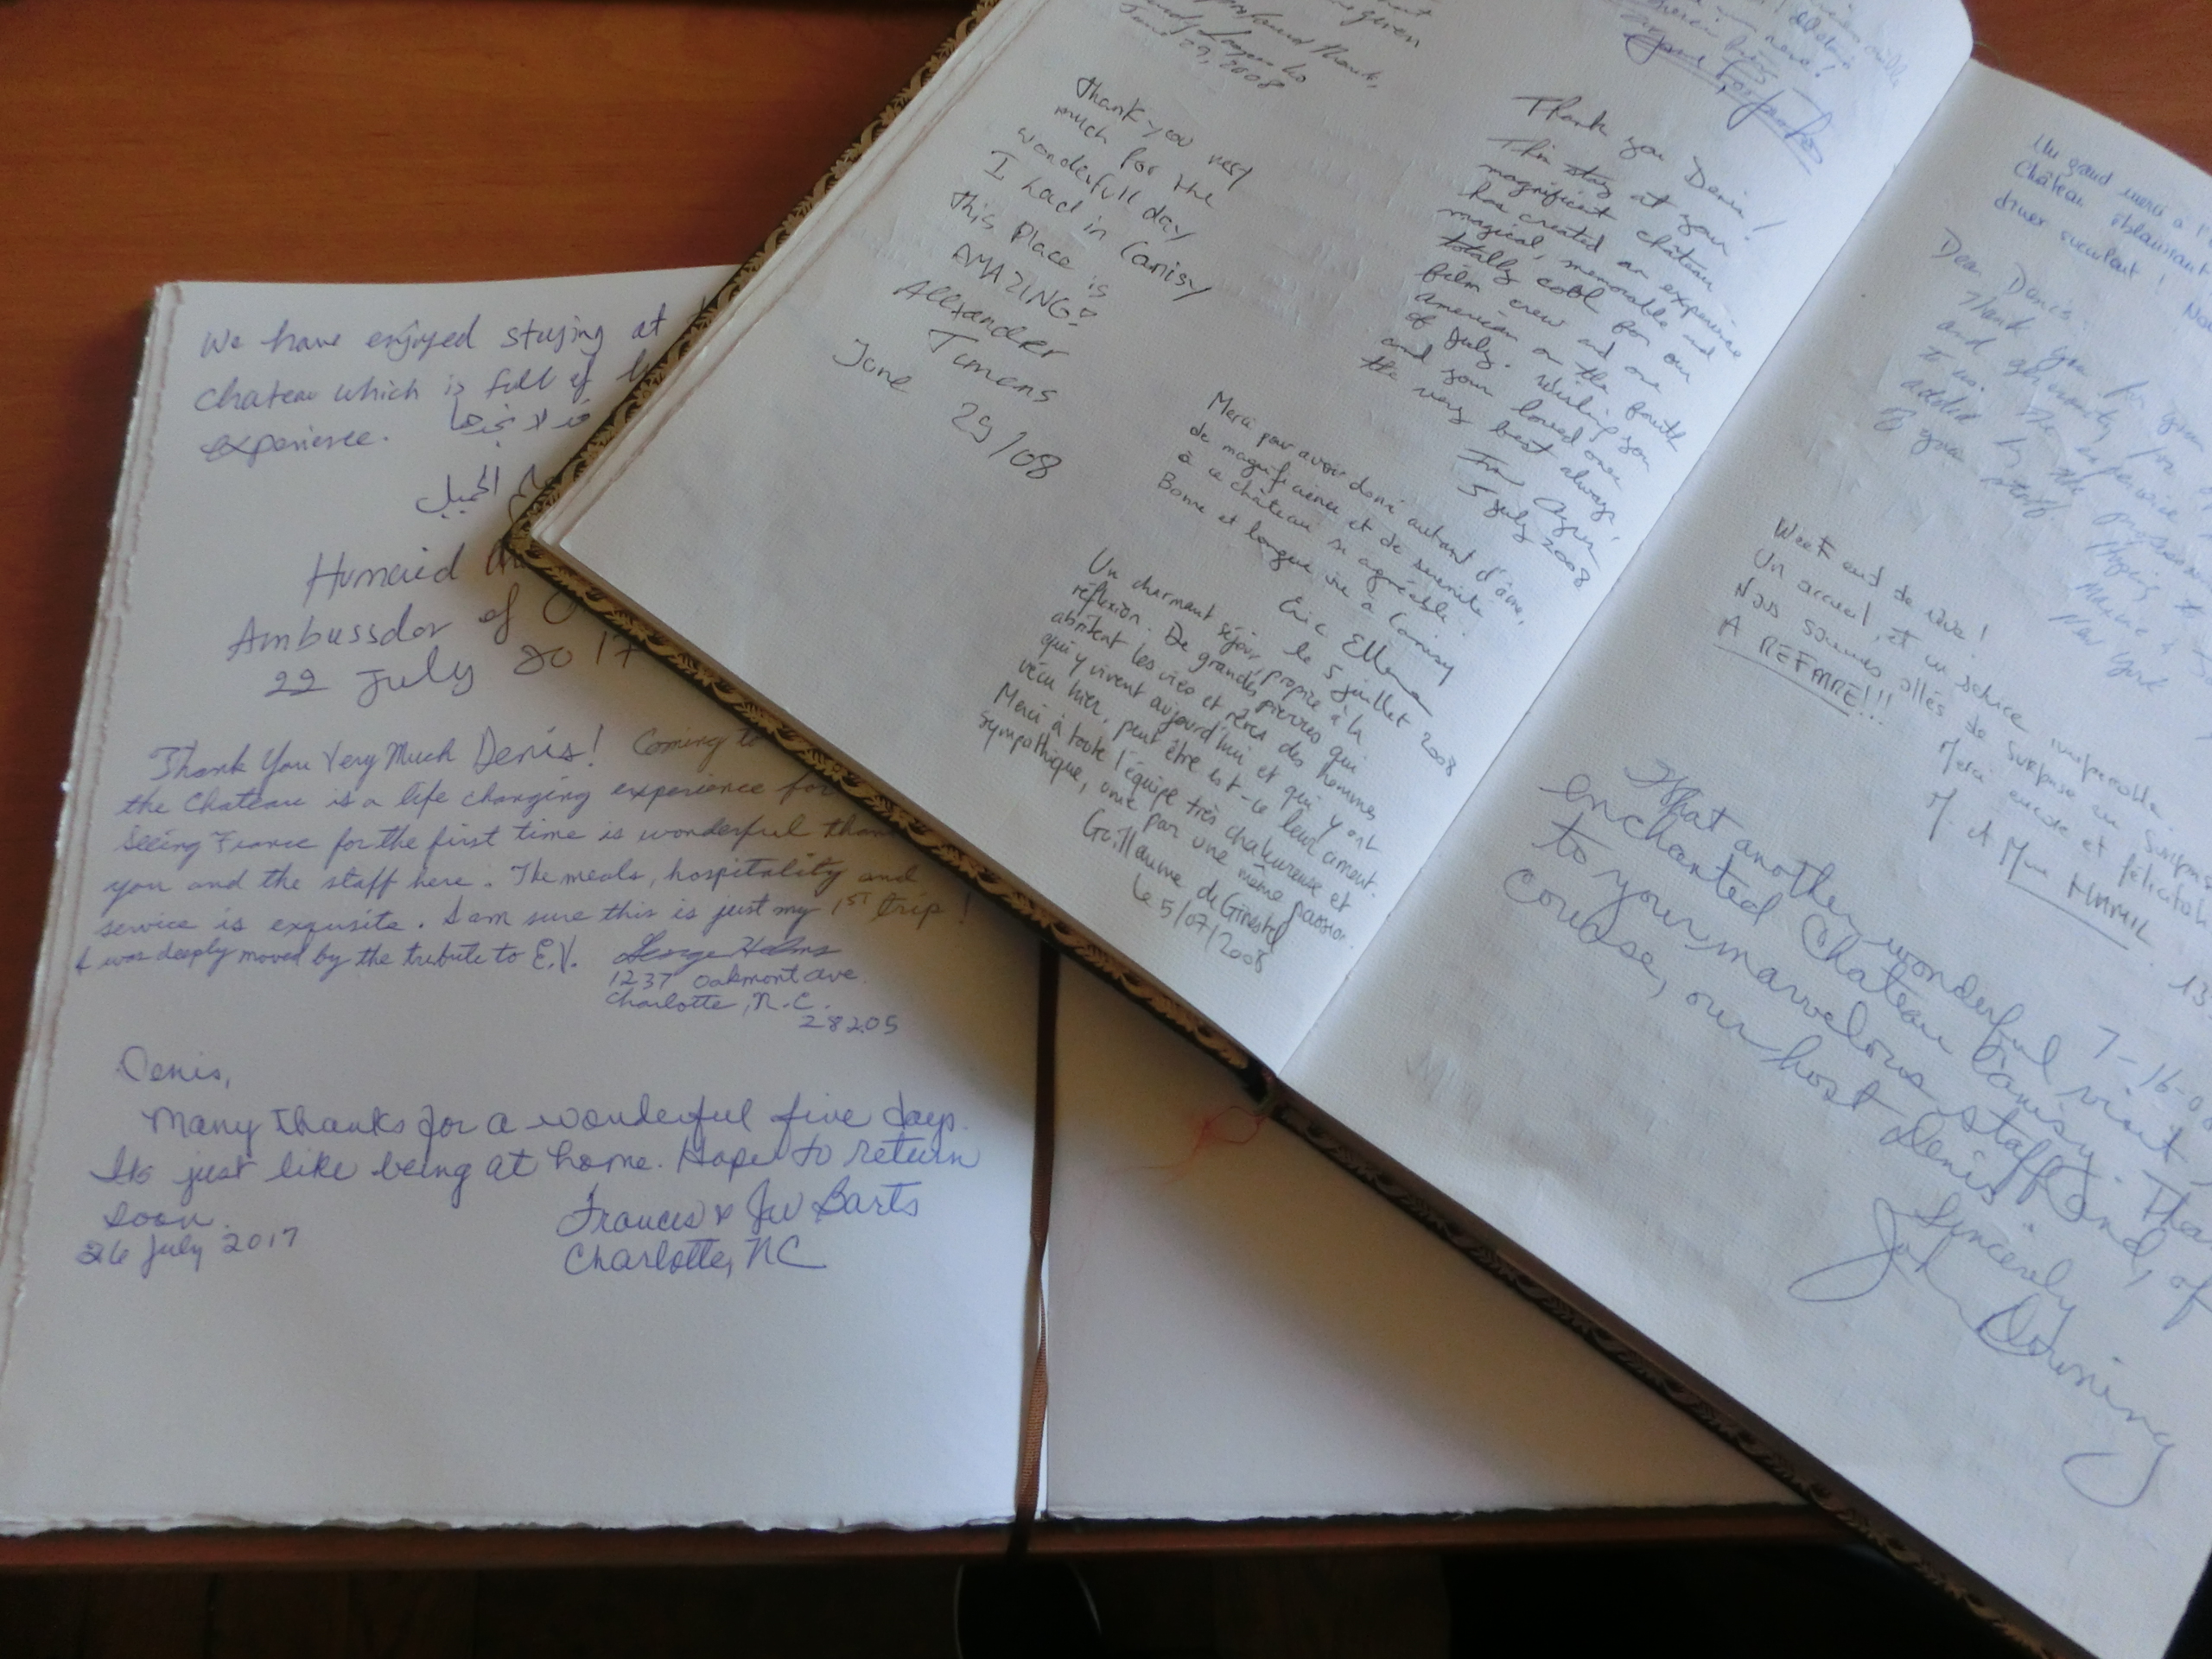 We have enjoyed staying at
chateau which is full of
experience.
Humaid
Ambussdor of
22 July 2017
Thank You Very Much Denis! Coming to
the Chateau is a life changing experience for
Seeing France for the first time is wonderful
you and the staff here. The meals, hospitality and
service is exquisite. I am sure this is just my 1ST trip!
I was deeply moved by the tribute to E.V.
George Helms
1237 Oakmont ave.
Charlotte, N.C.
28205
Denis,
Many thanks for a wonderful five days.
Its just like being at home. Hope to return
soon.
26 July 2017
Frances & JW Barts
Charlotte, NC
profound thanks,
June 29, 2008
Thank you very
much for the
wonderfull day
I had in Canisy
this Place is
AMAZING!
Allxander
Timans
June 29/08
Thank you Denis!
This stay at your
magnificent château
has created an experience
magical, memorable and
totally cool for our
film crew and one
american on the fourth
of July. Wishing you
and your loved ones
the very best always,
5 July 2008
Merci pour avoir donné autant d'âme,
de magnificience et de serenité
à ce château si agréable.
Bonne et longue vie à Canisy
Eric Ellena
le 5 juillet 2008
Un charmant séjour, propice à la
réflexion. De grandes pierres qui
abritent les vies et rêves des hommes
qui y vivent aujourd'hui et qui y ont
vécu hier, peut être est-ce leur ciment.
Merci à toute l'équipe très chaleureuse et
sympathique, unie par une même passion.
Guillaume de Ginestel
le 5/07/2008
Un grand merci à
Château éblouissant
diner succulent!
Dear Denis:
Thank you for your
and generosity
to us. The experience
added by the
of your staff.
New York
Week end de rêve!
Un accueil et un service
Nous sommes allés de surprise en surprise
A REFAIRE!!!
Merci encore et félicitations
M. et Mme
7-16-0
What another wonderful visit
enchanted Chateau Canisy.
to your marvelous staff and, of
course, our host Denis.
Sincerely
John Downing